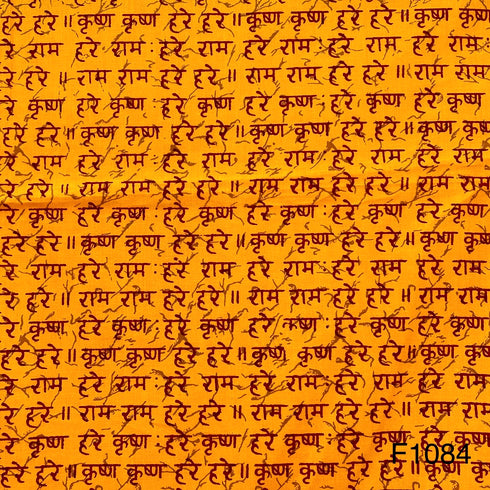 हरे हरे ॥ कृष्ण कृष्ण हरे हरे ॥ कृष्ण कृष्ण
रे राम हरे राम : हरे राम हरे राम : हरे राम हरे राम :
रे हरे ॥ राम राम हरे हरे ॥ राम राम हरे हरे ॥ राम राम
रे कृष्ण हरे कृष्ण : हरे कृष्ण हरे कृष्ण : हरे कृष्ण हरे कृष्ण
हरे हरे ॥ कृष्ण कृष्ण हरे हरे ॥ कृष्ण कृष्ण हरे हरे ॥ कृष्ण कृष्ण
रे राम हरे राम : हरे राम हरे राम : हरे राम हरे राम
रे हरे ॥ राम राम हरे हरे ॥ राम राम हरे हरे ॥ राम राम
रे कृष्ण हरे कृष्ण : हरे कृष्ण हरे कृष्ण : हरे कृष्ण हरे कृष्ण
हरे हरे ॥ कृष्ण कृष्ण हरे हरे ॥ कृष्ण कृष्ण हरे हरे ॥ कृष्ण कृष्ण
रे राम हरे राम : हरे राम हरे राम : हरे राम हरे राम
रे हरे ॥ राम राम हरे हरे ॥ राम राम हरे हरे ॥ राम राम
रे कृष्ण हरे कृष्ण : हरे कृष्ण हरे कृष्ण : हरे कृष्ण हरे कृष्ण
हरे हरे ॥ कृष्ण कृष्ण हरे हरे ॥ कृष्ण कृष्ण हरे हरे ॥ कृष्ण कृष्ण
रे राम हरे राम : हरे राम हरे राम : हरे राम हरे राम
रे हरे ॥ राम राम हरे हरे ॥ राम राम हरे हरे ॥ राम राम
रे कृष्ण हरे कृष्ण : हरे कृष्ण हरे कृष्ण : हरे कृष्ण हरे कृष्ण
F1084
हरे हरे ॥ कृष्ण कृष्ण हरे हरे ॥ कृष्ण कृष्ण हरे हरे ॥ कृष्ण कृष्ण